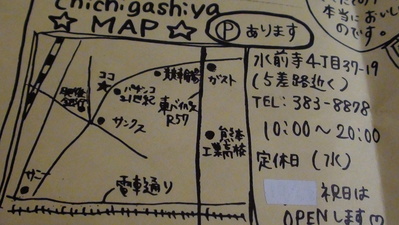 Chichigashiya
☆ MAP ☆
Ⓟあります
本当においし
のです。
水前寺4丁目37-19
(5差路近く)
TEL: 383-8878
10:00〜20:00
定休日(水)
祝日は
OPENします
ココ
☆
パチンコ
21世紀
東バイパス
R57
サンクス
ガスト
熊本
工業高校
サニー
電車通り